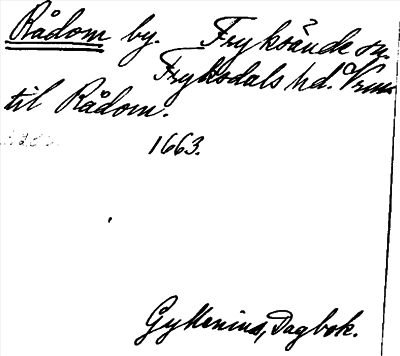 Rådom by. Fryksände sn.
Fryksdals hd. Vrml
til Rådom.
1663.
Gyllenius, Dagbok.